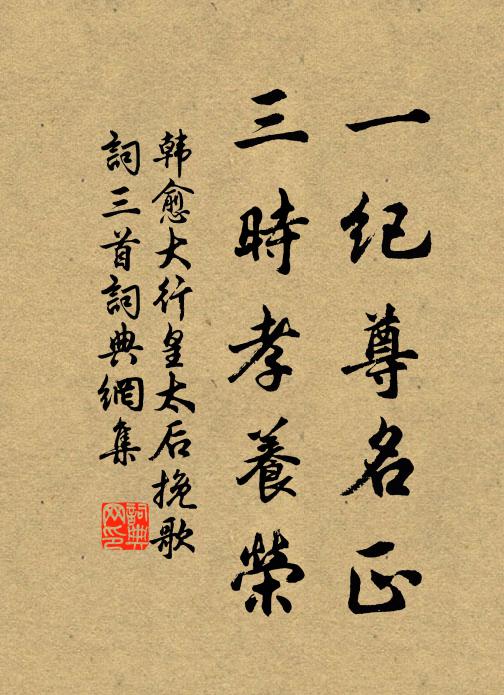 一紀尊名正
三時孝養榮
韩愈大行皇太后挽歌
詞三首詞典網集
詞典
网印